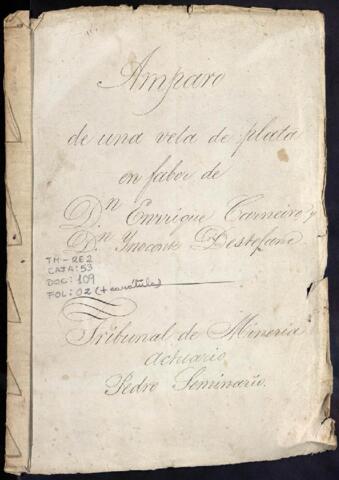 Amparo
de una veta de plata
en fabor de
Dn Enrrique Carneiro, y
Dn Ynocente Destefano
TM-RE2
CAJA: 53
DOC: 109
FOL: 02 (+ caratula)
Tribunal de Mineria
Actuario
Pedro Seminario.